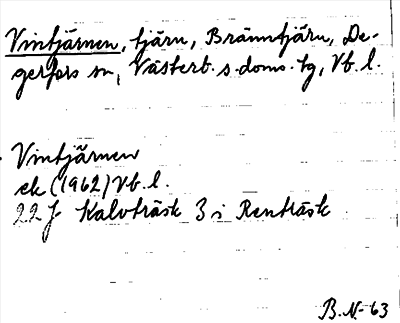 Vintjärnen, tjärn, Bränntjärn, De-
gerfors sn, Västerb. s. doms. tg, Vb. l.
Vintjärnen
ek (1962) Vb. l.
22 J Kalvträsk 3 i Renträsk
B. N-63